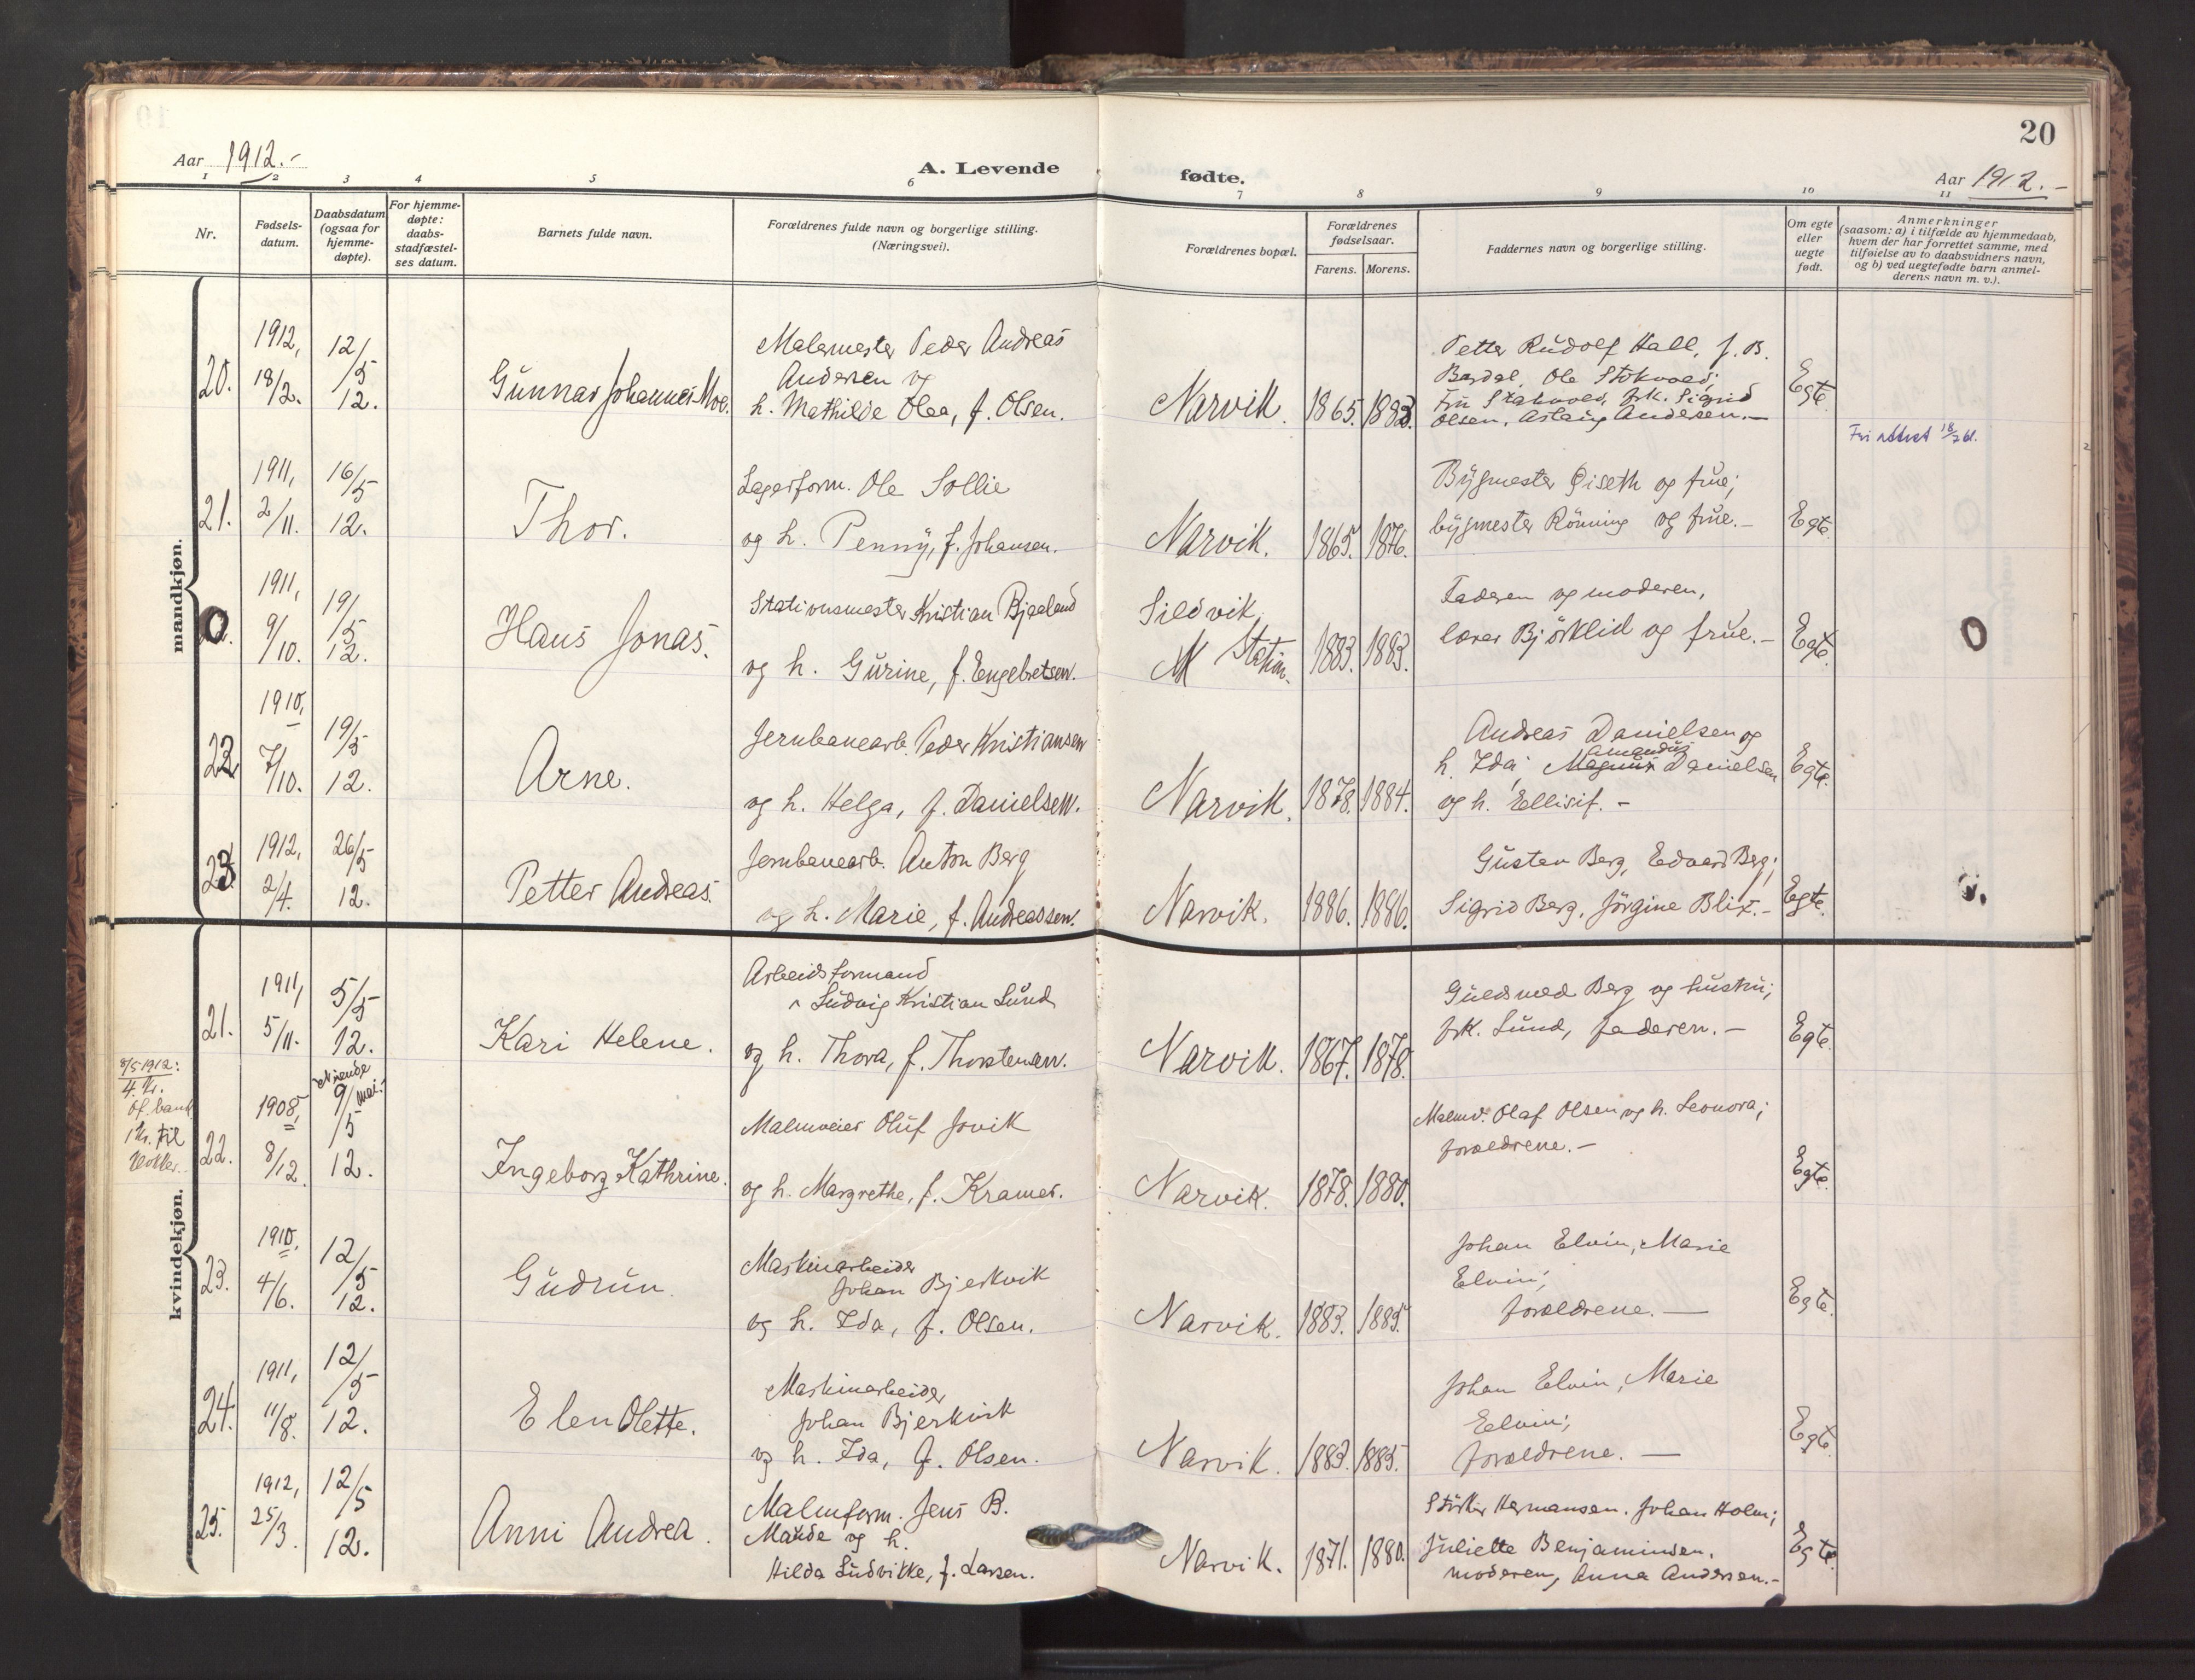 20
Aar 1912.-
A. Levende fødte.
Aar 1912.-
1 2 3 4 5 6 7 8 9 10 11
Nr.
Fødsels-
datum.
Daabsdatum
(ogsaa for
hjemme-
døpte).
For hjemme-
døpte:
daabs-
stadfæstel-
ses datum.
Barnets fulde navn.
Forældrenes fulde navn og borgerlige stilling.
(Næringsvei).
Forældrenes bopæl.
Forældrenes
fødselsaar.
Farens. Morens.
Faddernes navn og borgerlige stilling.
Om egte
eller
uegte
født.
Anmerkninger
(saasom: a) i tilfælde av hjemmedaab,
hvem der har forrettet samme, med
tilføielse av to daabsvidners navn,
og b) ved uegtefødte barn anmel-
derens navn m. v.).
mandkjøn.
20.
1912,
18/2.
12/5
12.
Gunnar Johannes Moe.
Malermester Peder Andreas
Andersen og
h. Mathilde Olea, f. Olsen.
Narvik.
1865. 1883.
Petter Rudolf Hall, J. B.
Bardal, Ole Stokvold;
Fru Stokvold, frk. Sigrid
Olsen, Aslaug Andersen.-
Egte.
Fri attest 18/7 61.
21.
1911,
2/11.
16/5
12.
Thor.
Lagerform. Ole Sollie
og h. Penny, f. Johansen.
Narvik.
1865. 1876.
Bygmester Øiseth og frue;
bygmester Rönning og frue.-
Egte.
0
1911,
9/10.
19/5
12.
Hans Jonas.
Stationsmester Kristian Bjaaland
og h. Gurine, f. Engebretsen.
Sildvik
Station.
1883. 1883.
Faderen og moderen,
lærer Björklid og frue.-
Egte.
0
22
1910,
7/10.
19/5
12.
Arne.
Jernbanearb. Peder Kristiansen
og h. Helga, f. Danielsen.
Narvik.
1878. 1884.
Andreas Danielsen og
Amandus
h. Ida; Magnus Danielsen
og h. Ellisif.-
Egte.
23
1912,
2/4.
26/5
12.
Petter Andreas.
Jernbanearb. Anton Berg
og h. Marie, f. Andreassen.
Narvik.
1886. 1886.
Gustav Berg, Edvard Berg;
Sigrid Berg, Jörgine Blix.-
Egte.
kvindekjøn.
21.
1911,
5/11.
5/5
12.
Kari Helene.
Arbeidsformand
Ludvig Kristian Lund
og h. Thora, f. Thorstensen.
Narvik.
1867. 1878.
Guldsmed Berg og hustru;
frk. Lund, faderen.-
Egte.
8/5 1912:
4 Kr.
1 Kr. til
22.
1908,
8/12.
Niende
9/5 mai.
12.
Ingeborg Kathrine.
Malmveier Oluf Jovik
og h. Margrethe, f. Kramer.
Narvik.
1878. 1880.
Malmv. Olaf Olsen og h. Leonora;
forældrene.-
Egte.
23.
1910,
4/6.
12/5
12.
Gudrun.
Maskinarbeider
Johan Bjerkvik
og h. Ida, f. Olsen.
Narvik.
1883. 1885.
Johan Elvin, Marie
Elvin;
forældrene.-
Egte.
24.
1911,
11/8.
12/5
12.
Elen Olette.
Maskinarbeider
Johan Bjerkvik
og h. Ida, f. Olsen.
Narvik.
1883. 1885.
Johan Elvin, Marie
Elvin;
forældrene.-
Egte.
25.
1912,
25/3.
12/5
12.
Anni Andrea.
Malmform. Jens B.
Maude og h.
Hilda Ludvikke, f. Larsen.
Narvik.
1871. 1880.
Hermansen, Johan Holm;
Juliette Benjaminsen,
moderen, Anna Andersen.-
Egte.